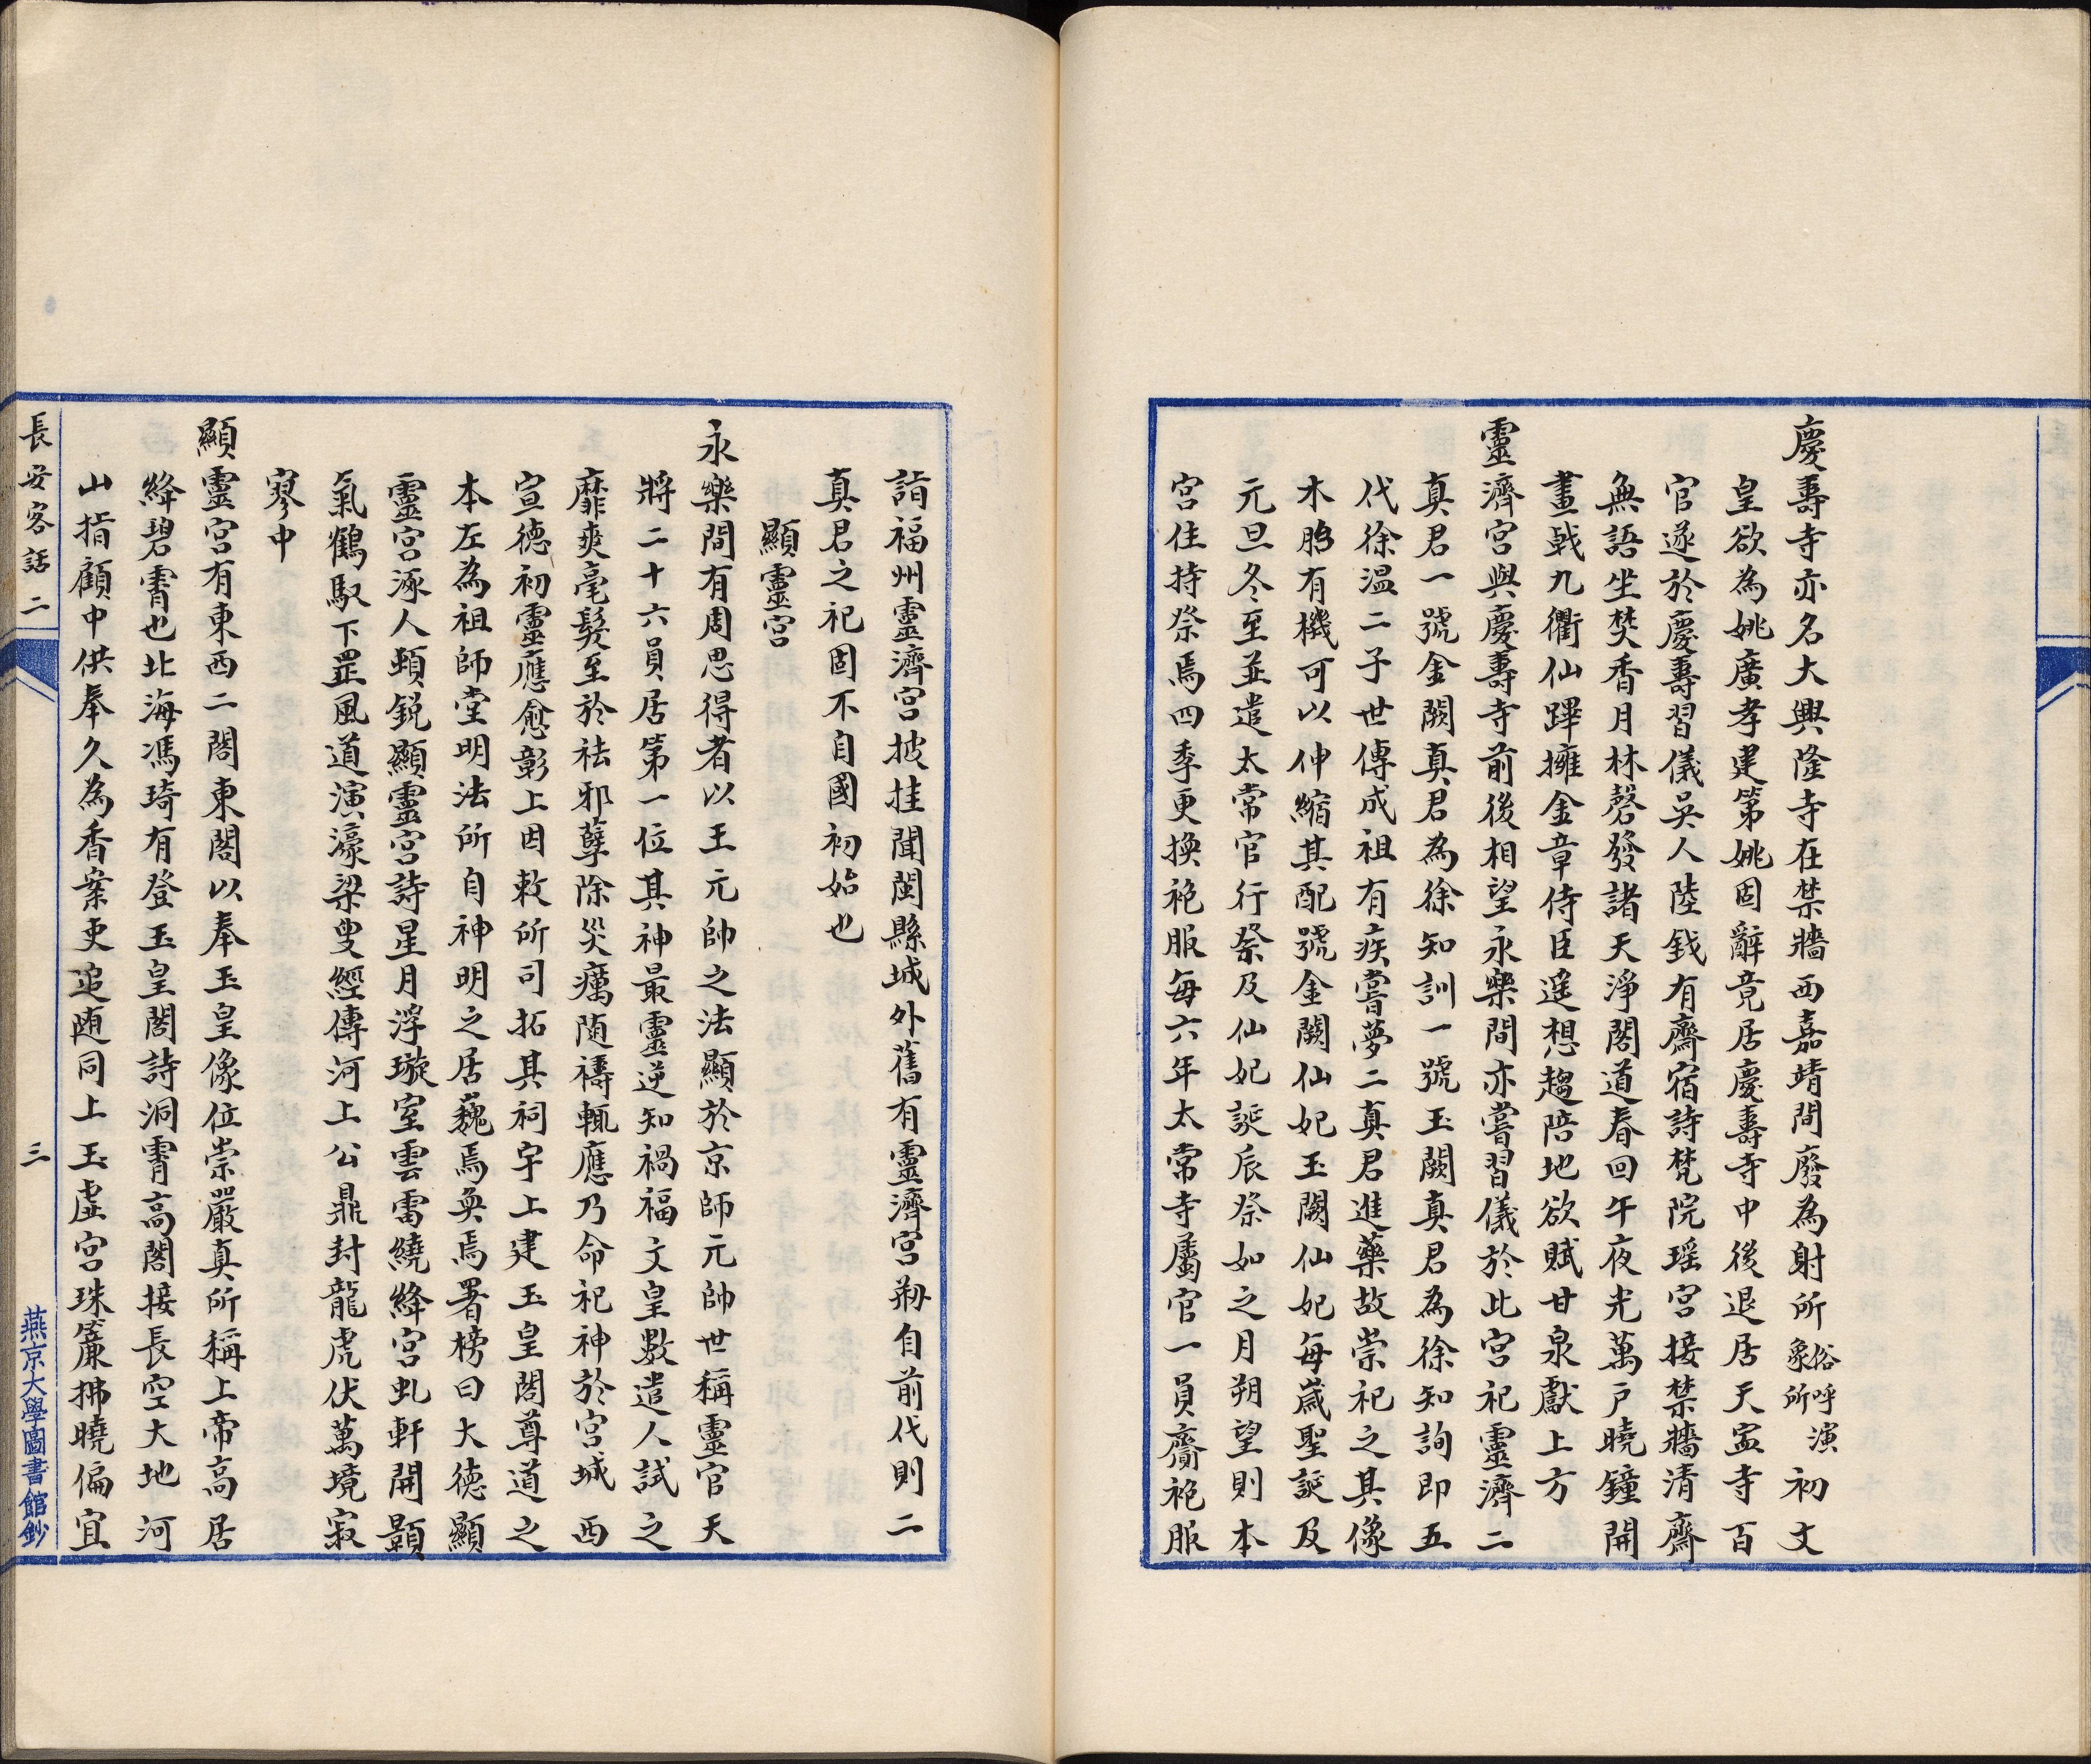 慶壽寺亦名大興隆寺在禁牆西嘉靖間廢為射所俗呼演象所初文
皇欲為姚廣孝建第姚固辭竟居慶壽寺中後退居天寍寺百
官遂於慶壽習儀吳人陸釴有齋宿詩梵院瑶宮接禁牆清齋
無語坐焚香月林磬發諸天淨閣道春回午夜光萬戶曉鐘開
畫戟九衢仙蹕擁金章侍臣遥想趨陪地欲賦甘泉獻上方
靈濟宮與慶壽寺前後相望永樂間亦嘗習儀於此宮祀靈濟二
真君一號金闕真君為徐知訓一號玉闕真君為徐知詢即五
代徐温二子世傳成祖有疾嘗夢二真君進藥故崇祀之其像
木胎有機可以伸縮其配號金闕仙妃玉闕仙妃每歲聖誕及
元旦冬至並遣太常官行祭及仙妃誕辰祭如之月朔望則本
宮住持祭焉四季更換袍服每六年太常寺屬官一員齎袍服
詣福州靈濟宮披挂聞閩縣城外舊有靈濟宮剙自前代則二
真君之祀固不自國初始也
顯靈宮
永樂間有周思得者以王元帥之法顯於京師元帥世稱靈官天
將二十六員居第一位其神最靈逆知禍福文皇數遣人試之
靡爽毫髮至於祛邪孽除災癘随禱輒應乃命祀神於宮城西
宣德初靈應愈彰上因敕所司拓其祠宇上建玉皇閣尊道之
本左為祖師堂明法所自神明之居巍焉奐焉署榜曰大德顯
靈宮涿人頓銳顯靈宮詩星月浮璇室雲雷繞絳宮虬軒開顥
氣鶴馭下罡風道演濠梁叟經傳河上公鼎封龍虎伏萬境寂
寥中
顯靈宮有東西二閣東閣以奉玉皇像位崇嚴真所稱上帝高居
絳碧霄也北海馮琦有登玉皇閣詩洞霄高閣接長空大地河
山指顧中供奉久為香案吏追随同上玉虛宮珠簾拂曉偏宜
長安客話 二
三
燕京大學圖書館鈔